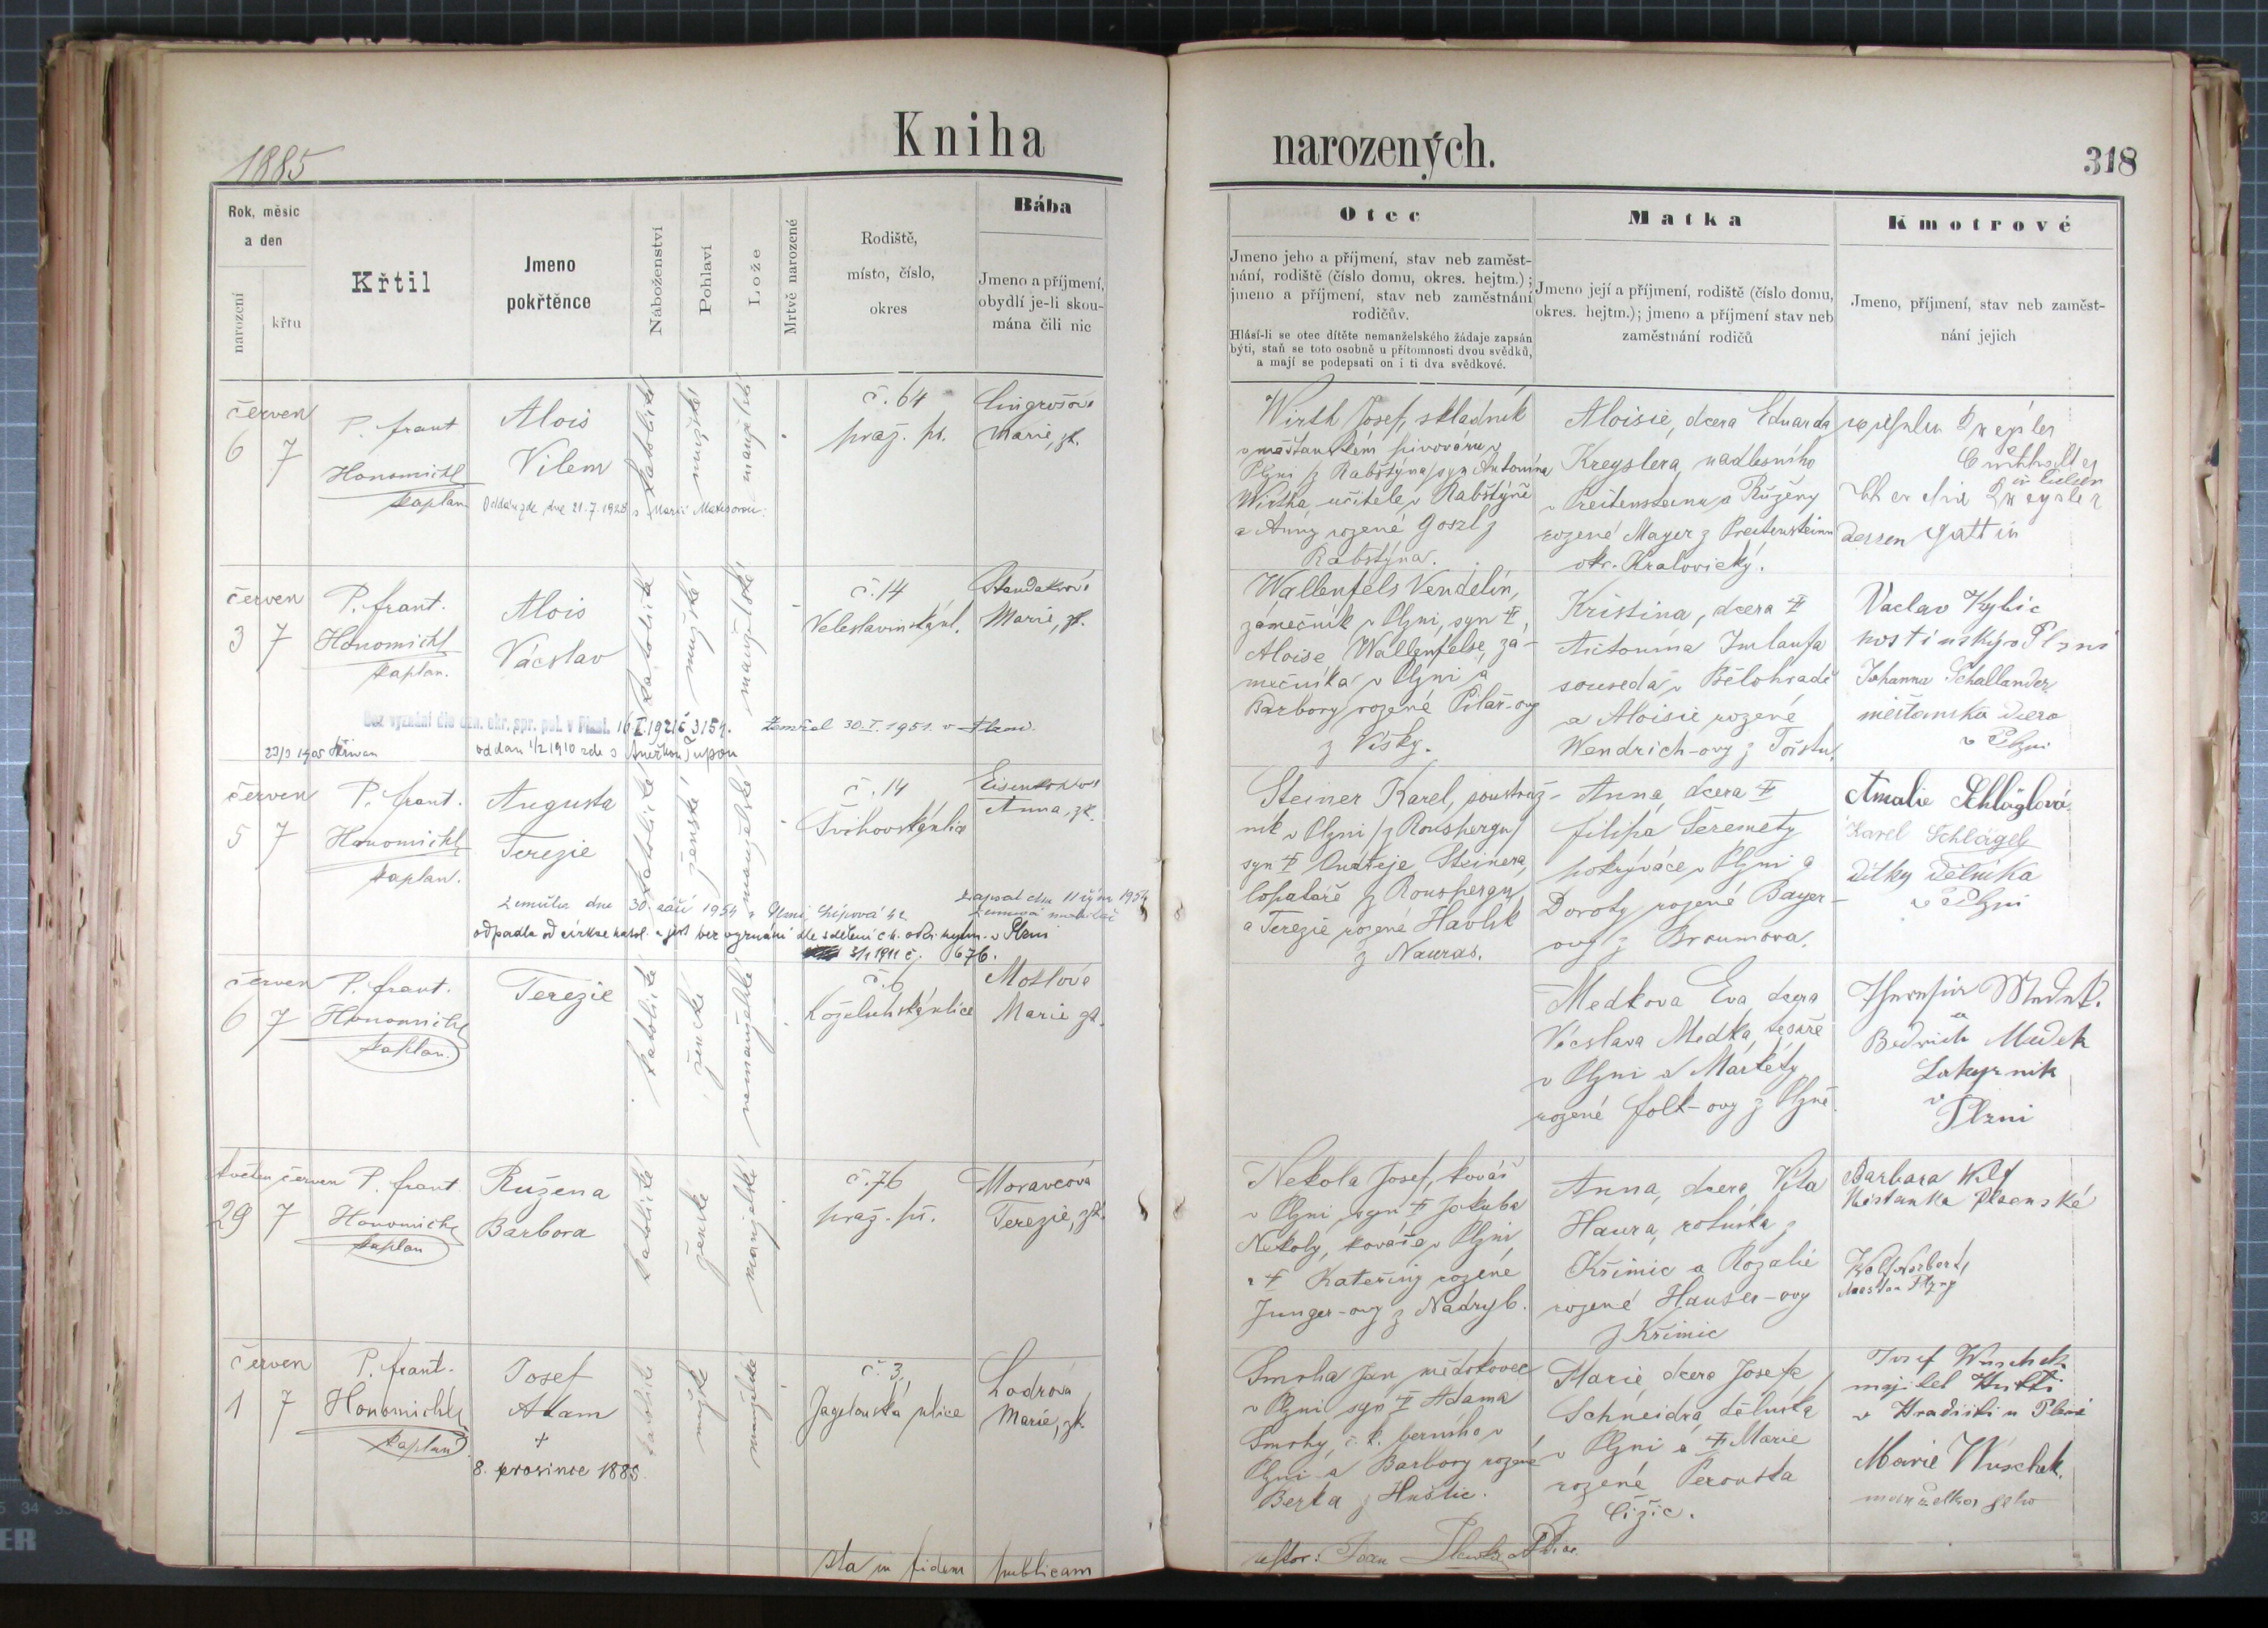 Kniha
narozených.
1885
318
Rok, měsíc
a den
narození
křtu
Křtil
Jmeno
pokřtěnce
Náboženství
Pohlaví
Lože
Mrtvě narozené
Rodiště,
místo, číslo,
okres
Bába
Jmeno a příjmení,
obydlí je-li skou-
mána čili nic
Otec
Jmeno jeho a příjmení, stav neb zaměst-
nání, rodiště (číslo domu, okres. hejtm.);
jmeno a příjmení, stav neb zaměstnání
rodičův.
Hlásí-li se otec dítěte nemanželského žádaje zapsán
býti, staň se toto osobně u přítomnosti dvou svědků,
a mají se podepsati on i ti dva svědkové.
Matka
Jmeno její a příjmení, rodiště (číslo domu,
okres. hejtm.); jmeno a příjmení stav neb
zaměstnání rodičů
Kmotrové
Jmeno, příjmení, stav neb zaměst-
nání jejich
červen
6 7
P. frant
Honomichl
kaplan
Alois
Vilem
Oddán zde dne 21.7.1928 s Marií
katolické
mužské
manželské
č. 64
praž. př.
Lingrošová
Marie, zk.
Wirth Josef, skladník
v měšťanském pivováru v
Plzni z Rabštýna, syn Antonína
Wirtha, učitele v Rabštýně
a Anny rozené Goszl z
Rabštýna.
Aloisie, dcera Eduarda
Kreyslera, nadlesního
v Preitensteinu a Růženy
rozené Mayer z Preitensteinu
okr. Kralovický.
in Pilsen
dessen Gattin
červen
3 7
P. frant.
Honomichl
kaplan.
Alois
Václav
katolické
mužské
manželské
č. 14
Veleslavínská ul.
Marie, zk.
Wallenfels Vendelín,
zámečník v Plzni, syn †
Aloise Wallenfelse, zá-
mečníka v Plzni a
Barbory rozené Pilař-ovy
z Víšky.
Kristina, dcera †
Antonína Imlaufa
souseda v Bělohradě
a Aloisie rozené
Wendrich-ovy z
Vaclav Kybic
hostinský v Plzni
Johanna Schallander
měšťanská dcera
v Plzni
Bez vyznání dle ozn. okr. spr. pol. v Plzni. 16.I.1921 č 3154.
Zemřel 30.I.1951. v Plzni.
23/3 1905 biřmován
oddán 1/2 1910 zde s Anežkou Županou
červen
5 7
P. frant.
Honomichl
kaplan.
Augusta
Terezie
katolické
ženské
manželské
č. 14
Švihovská ulice
Anna, zk.
Steiner Karel, soustruž-
ník v Plzni z Ronspergu
syn † Ondřeje Steinera,
lopatáře z Ronspergu
a Terezie rozené Havlík
z Nauras.
Anna, dcera †
Filipa Šeremety
pokrývače v Plzni a
Doroty rozené Bayer-
ovy z Broumova.
Amalie Schlöglová
Karel Schlögel
Dítky Dělníka
v Plzni
Zemřela dne 30. září 1954 v Plzni, Lípová 42
Zapsal dne 11 října 1954
odpadla od církve katol. a jest bez vyznání dle sdělení c.k. okr. hejtm. v Plzni
3/1 1911 č. 676.
červen
6 7
P. frant.
Honomichl
kaplan.
Terezie
katolické
ženské
nemanželské
č. 6
Koželuhská ulice
Mostová
Marie zk.
Medková Eva dcera
Václava Medka, tesaře
v Plzni a Markéty
rozené Folk-ovy z Plzně.
a
Bedřich Medek
Lakyrnik
v
Plzni
květen červen
29 7
P. frant
Honomichl
kaplan
Ružena
Barbora
katolické
ženské
manželské
č. 76
praž. př.
Moravcová
Terezie, zk.
Nekola Josef, kovář
v Plzni, syn † Jakuba
Nekoly, kováře v Plzni
a † Kateřiny rozené
Junger-ovy z Nadryb.
Anna, dcera Víta
Haura, rolníka z
Křimic a Rozalie
rozené Hauser-ovy
z Křimic
Barbara Wolf
Měšťanka Plzenská
Wolf Norbert,
Měšťan Plzný
červen
1 7
P. frant.
Honomichl
kaplan
Josef
Adam
+
8. prosince 1885.
katolické
mužské
manželské
č. 3,
Jagelonská ulice
Lodrová
Marie, zk.
Smrha Jan mědikovec
v Plzni syn † Adama
Smrhy, c.k. berního v
Plzni a Barbory rozené
Berka z Huštic.
Marie dcera Josefa
Schneidra, dělníka
v Plzni a † Marie
rozené Peroutka
Čižic.
Josef Wuschek
majitel Hutti
v Hradisti u Plzně
Marie Wuschek.
manželka jeho
sta in fidem publicam
testor: Joan